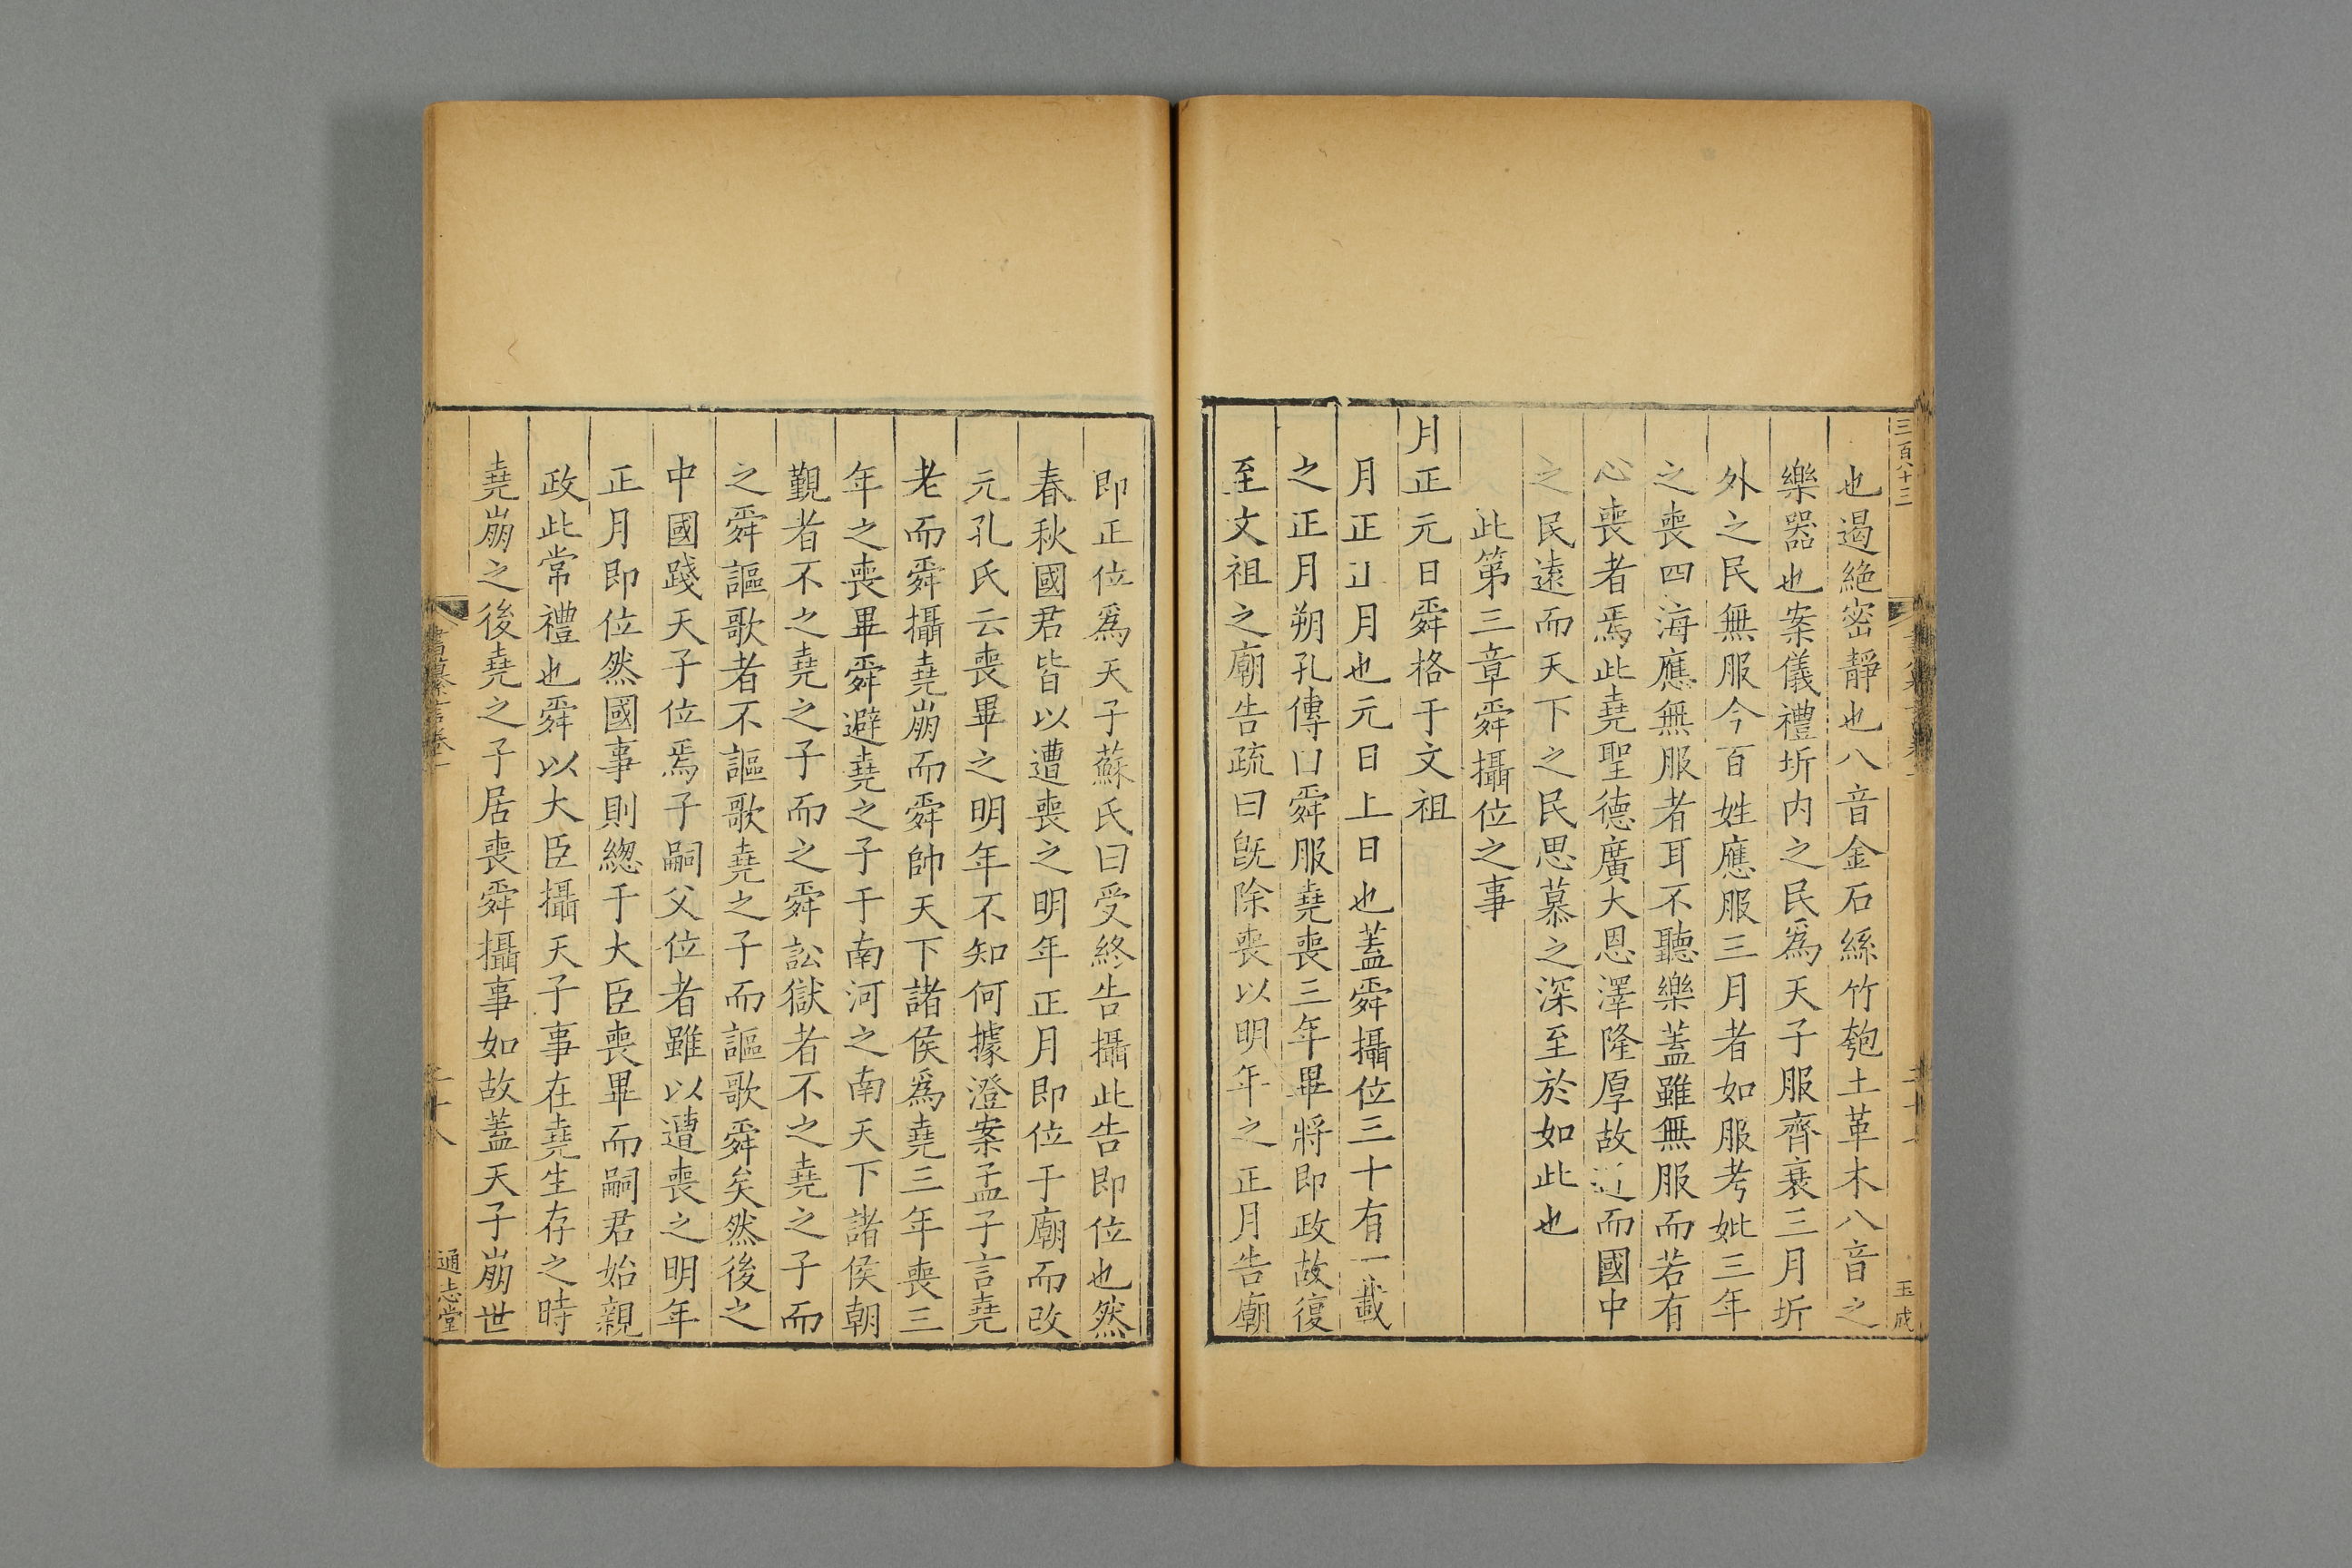 三百八十三
也遏絶密靜也八音金石絲竹匏土革木八音之
樂器也案儀禮圻内之民爲天子服齊衰三月圻
外之民無服今百姓應服三月者如服考妣三年
之喪四海應無服者耳不聽樂蓋雖無服而若有
心喪者焉此堯聖德廣大恩澤隆厚故近而國中
之民遠而天下之民思慕之深至於如此也
此第三章舜攝位之事
月正元日舜格于文祖
月正正月也元日上日也蓋舜攝位三十有一載
之正月朔孔傳曰舜服堯喪三年畢將即政故復
至文祖之廟告疏曰旣除喪以明年之正月告廟
玉成
即正位爲天子蘇氏曰受終告攝此告即位也然
春秋國君皆以遭喪之明年正月即位于廟而改
元孔氏云喪畢之明年不知何據澄案孟子言堯
老而舜攝堯崩而舜帥天下諸侯爲堯三年喪三
年之喪畢舜避堯之子于南河之南天下諸侯朝
覲者不之堯之子而之舜訟獄者不之堯之子而
之舜謳歌者不謳歌堯之子而謳歌舜矣然後之
中國踐天子位焉子嗣父位者雖以遭喪之明年
正月即位然國事則緫于大臣喪畢而嗣君始親
政此常禮也舜以大臣攝天子事在堯生存之時
堯崩之後堯之子居喪舜攝事如故蓋天子崩世
書纂言卷一
二十八
通志堂